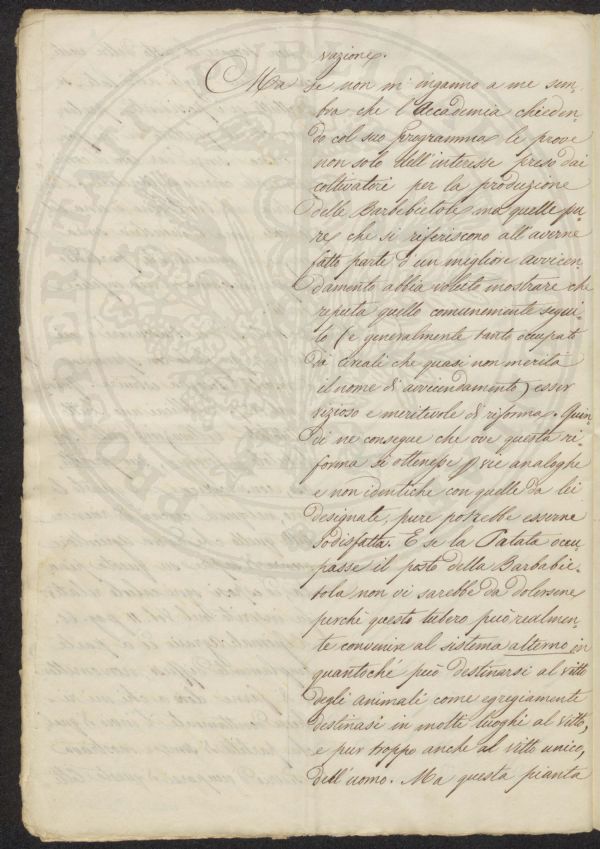 vazione.
Ma se non m'inganno a me sem-
bra che l'Accademia chieden-
do col suo Programma le prove
non solo dell'interesse preso dai
coltivatori per la produzione
delle Barbebietole, ma quelle pu-
re che si riferiscono all'averne
fatto parte d'un migliore avvicen-
damento abbia voluto mostrare che
reputa quello comunemente segui-
to (e generalmente tanto occupato
da cereali che quasi non merita
il nome di avvicendamento) esser
vizioso e meritevole di riforma. Quin-
di ne consegue che ove questa ri-
forma si ottenesse p vie analoghe
e non identiche con quelle da lei
designate, pure potrebbe esserne
sodisfatta. E se la Patata occu-
passe il posto della Barbabie-
tola non vi sarebbe da dolersene
perchè questo tubero può realmen-
te convenire al sistema alterno in
quantochè può destinarsi al vitto
degli animali come egregiamente
destinasi in molti luoghi al vitto,
e pur troppo anche al vitto unico,
dell'uomo. Ma questa pianta